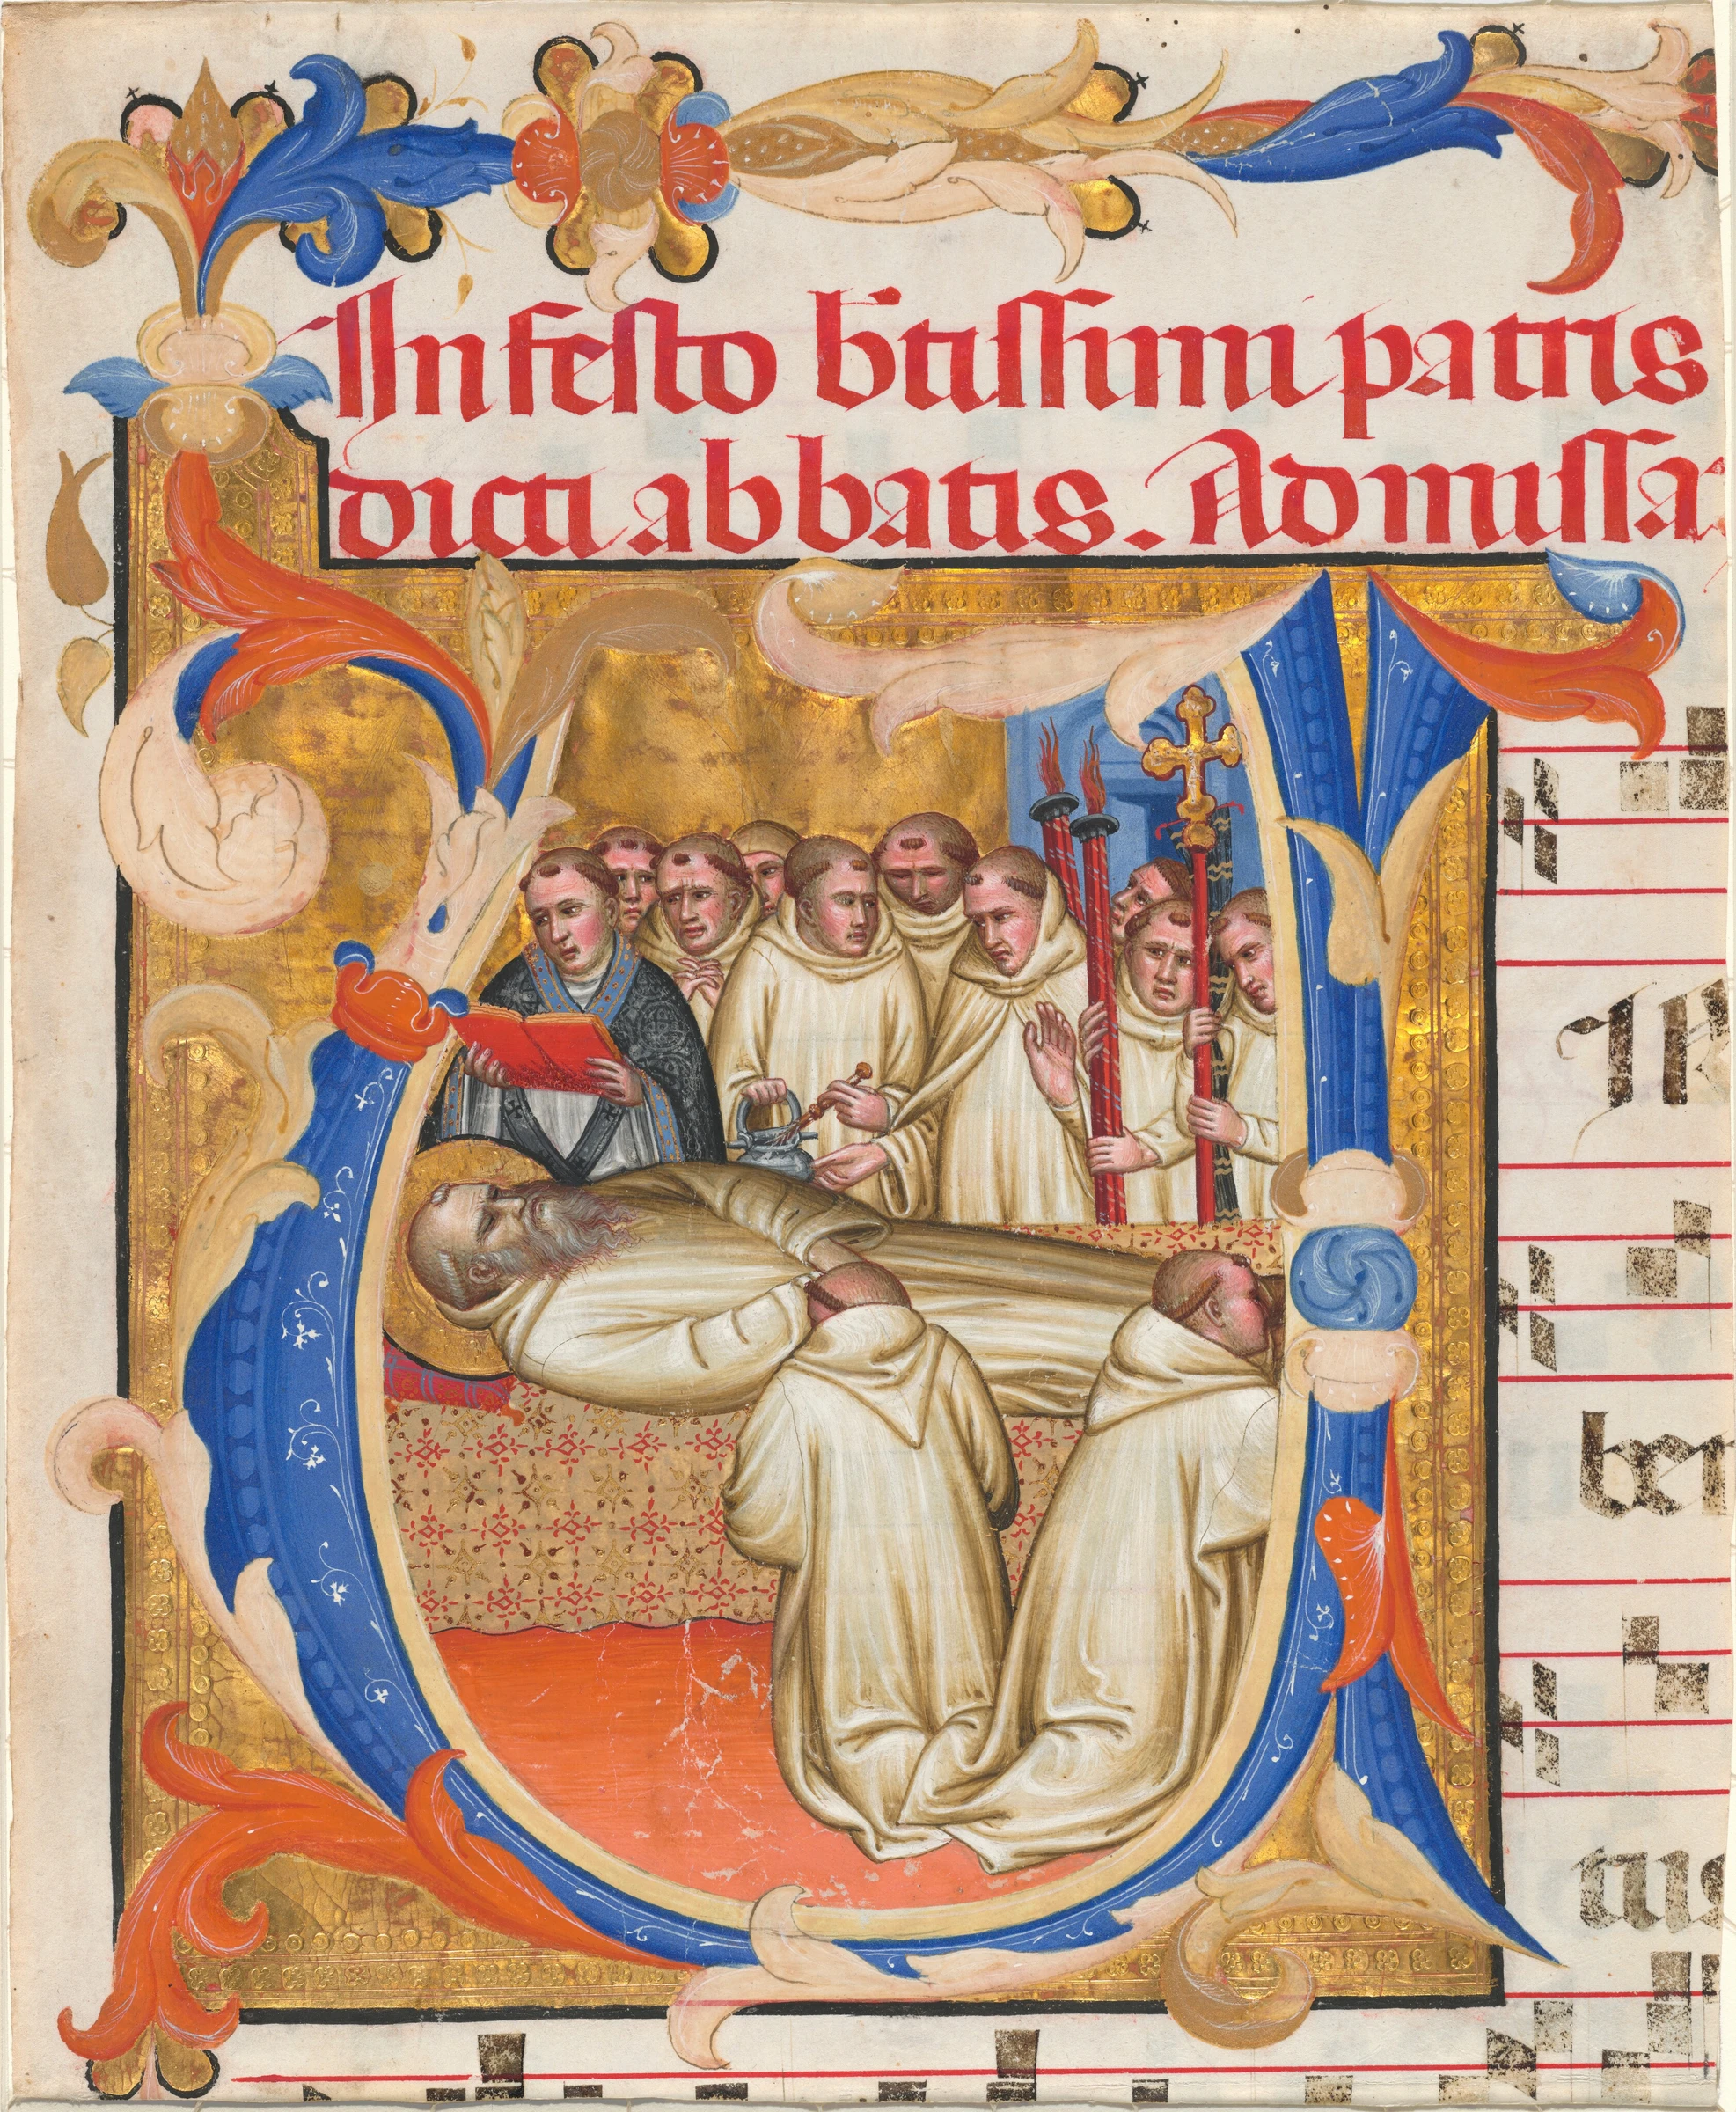 In festo b̄tissimi patris
dicti abbatis. Ad missa
ben
tus